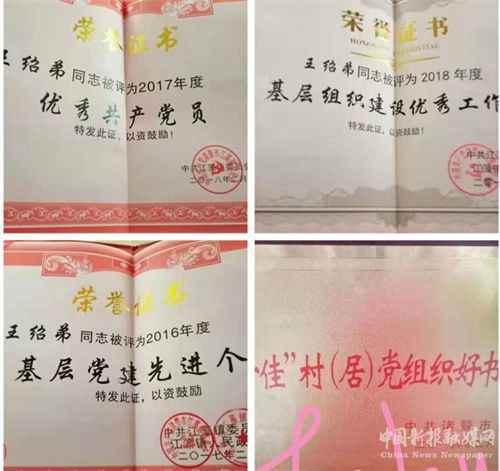 荣誉证书
王绍弟同志被评为2017年度
优秀共产党员
特发此证，以资鼓励！
中共江
二〇一八年
荣誉证书
王绍弟同志被评为2018年度
基层组织建设优秀工作
特发此证，以资鼓励！
中共江
荣誉证书
王绍弟同志被评为2016年度
基层党建先进个
特发此证，以资鼓励
中共江潭镇委员
江潭镇人民政
二〇一七年二
佳”村（居）党组织好书
中共涟源市
中国新报融媒网
China News Newspaper